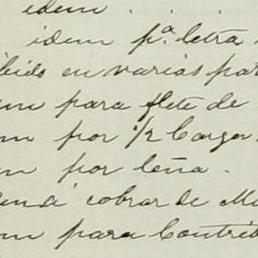 idem . . .
idem p.ª letra
bido en varias par
em para flete de
m por 1/2 Carga
m por leña .
cobrar de M
em para Contrib